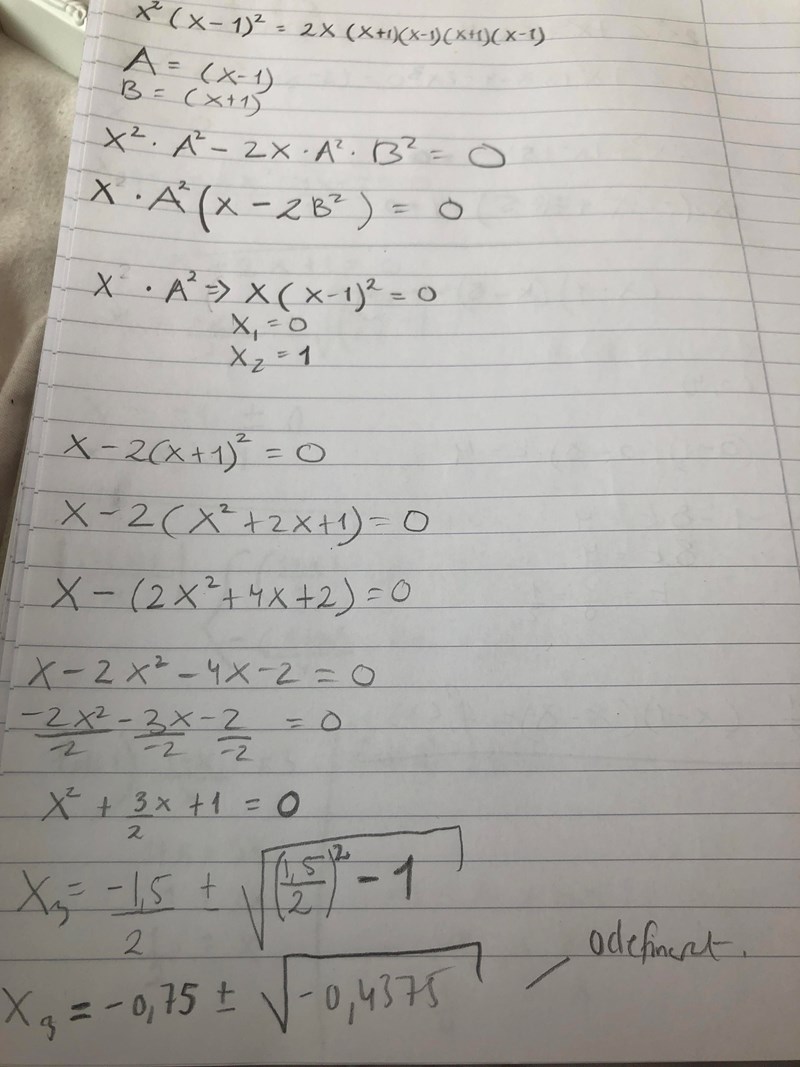 x² (x-1)² = 2x (x+1)(x-1)(x+1)(x-1)
A = (x-1)
B = (x+1)
x² · A² - 2x · A² · B² = 0
x · A² (x - 2B²) = 0
x · A² ⇒ x(x-1)² = 0
x₁ = 0
x₂ = 1
x - 2(x+1)² = 0
x - 2(x² + 2x + 1) = 0
x - (2x² + 4x + 2) = 0
x - 2x² - 4x - 2 = 0
-2x²/-2 - 3x/-2 - 2/-2 = 0
x² + 3x/2 + 1 = 0
x₃ = -1,5/2 ± √((1,5/2)² - 1)
x₃ = -0,75 ± √(-0,4375) / Odefinierat.